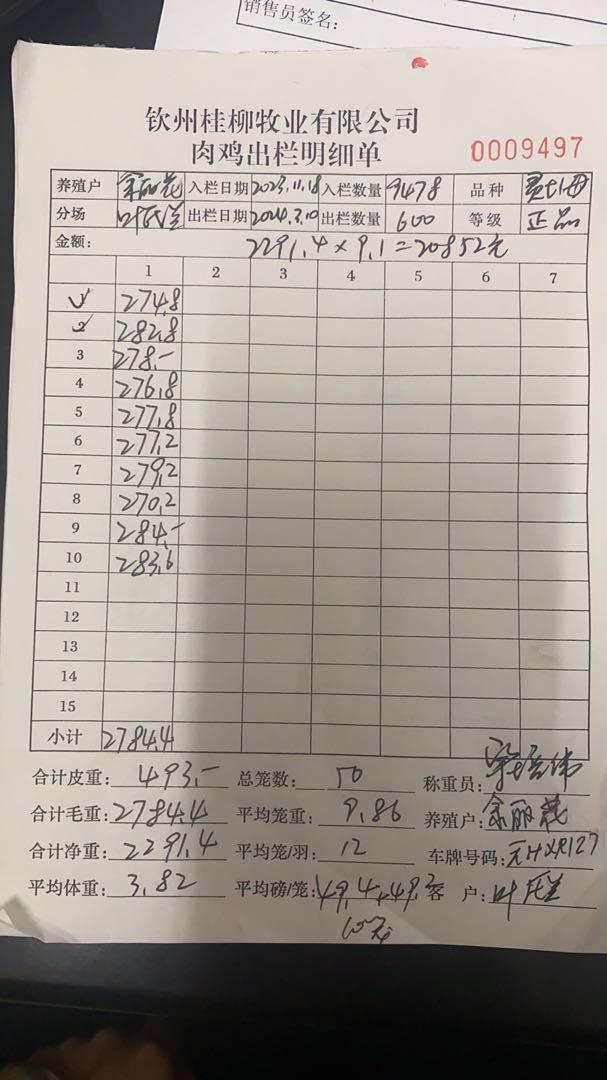 销售员签名：
钦州桂柳牧业有限公司
肉鸡出栏明细单
0009497
养殖户 余丽花 入栏日期 2023.11.18 入栏数量 9478 品种
分场 出栏日期 2024.3.10 出栏数量 600 等级 正品
金额： 2291.4×9.1=20852元
1 2 3 4 5 6 7
1 274.8
2 282.8
3 278.-
4 276.8
5 277.8
6 277.2
7 279.2
8 270.2
9 284.-
10 283.6
11
12
13
14
15
小计 2784.4
合计皮重：493.- 总笼数：50 称重员：
合计毛重：2784.4 平均笼重：9.86 养殖户：余丽花
合计净重：2291.4 平均笼/羽：12 车牌号码：
平均体重：3.82 平均磅/笼：49.4,49.3 客 户：